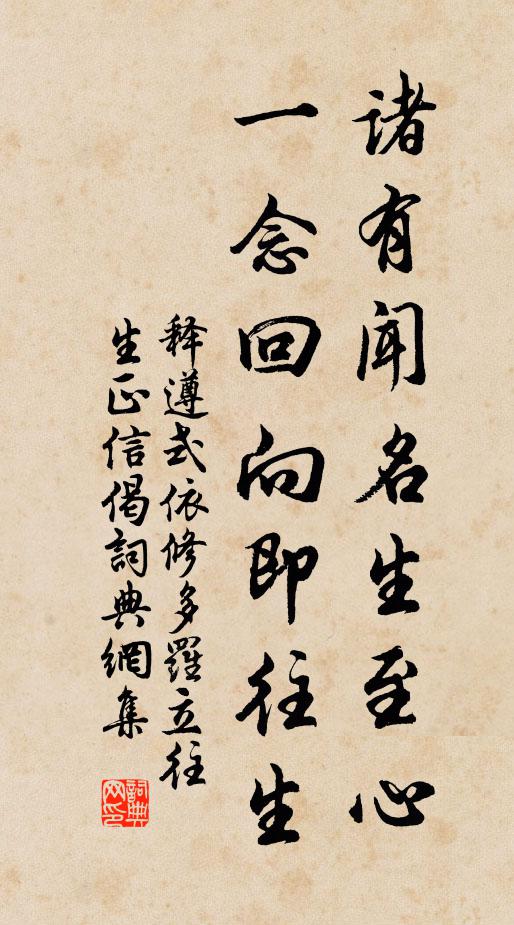 諸有聞名生至心
一念回向即往生
释遵式依修多羅立往
生正信偈詞典網集
詞典
网印